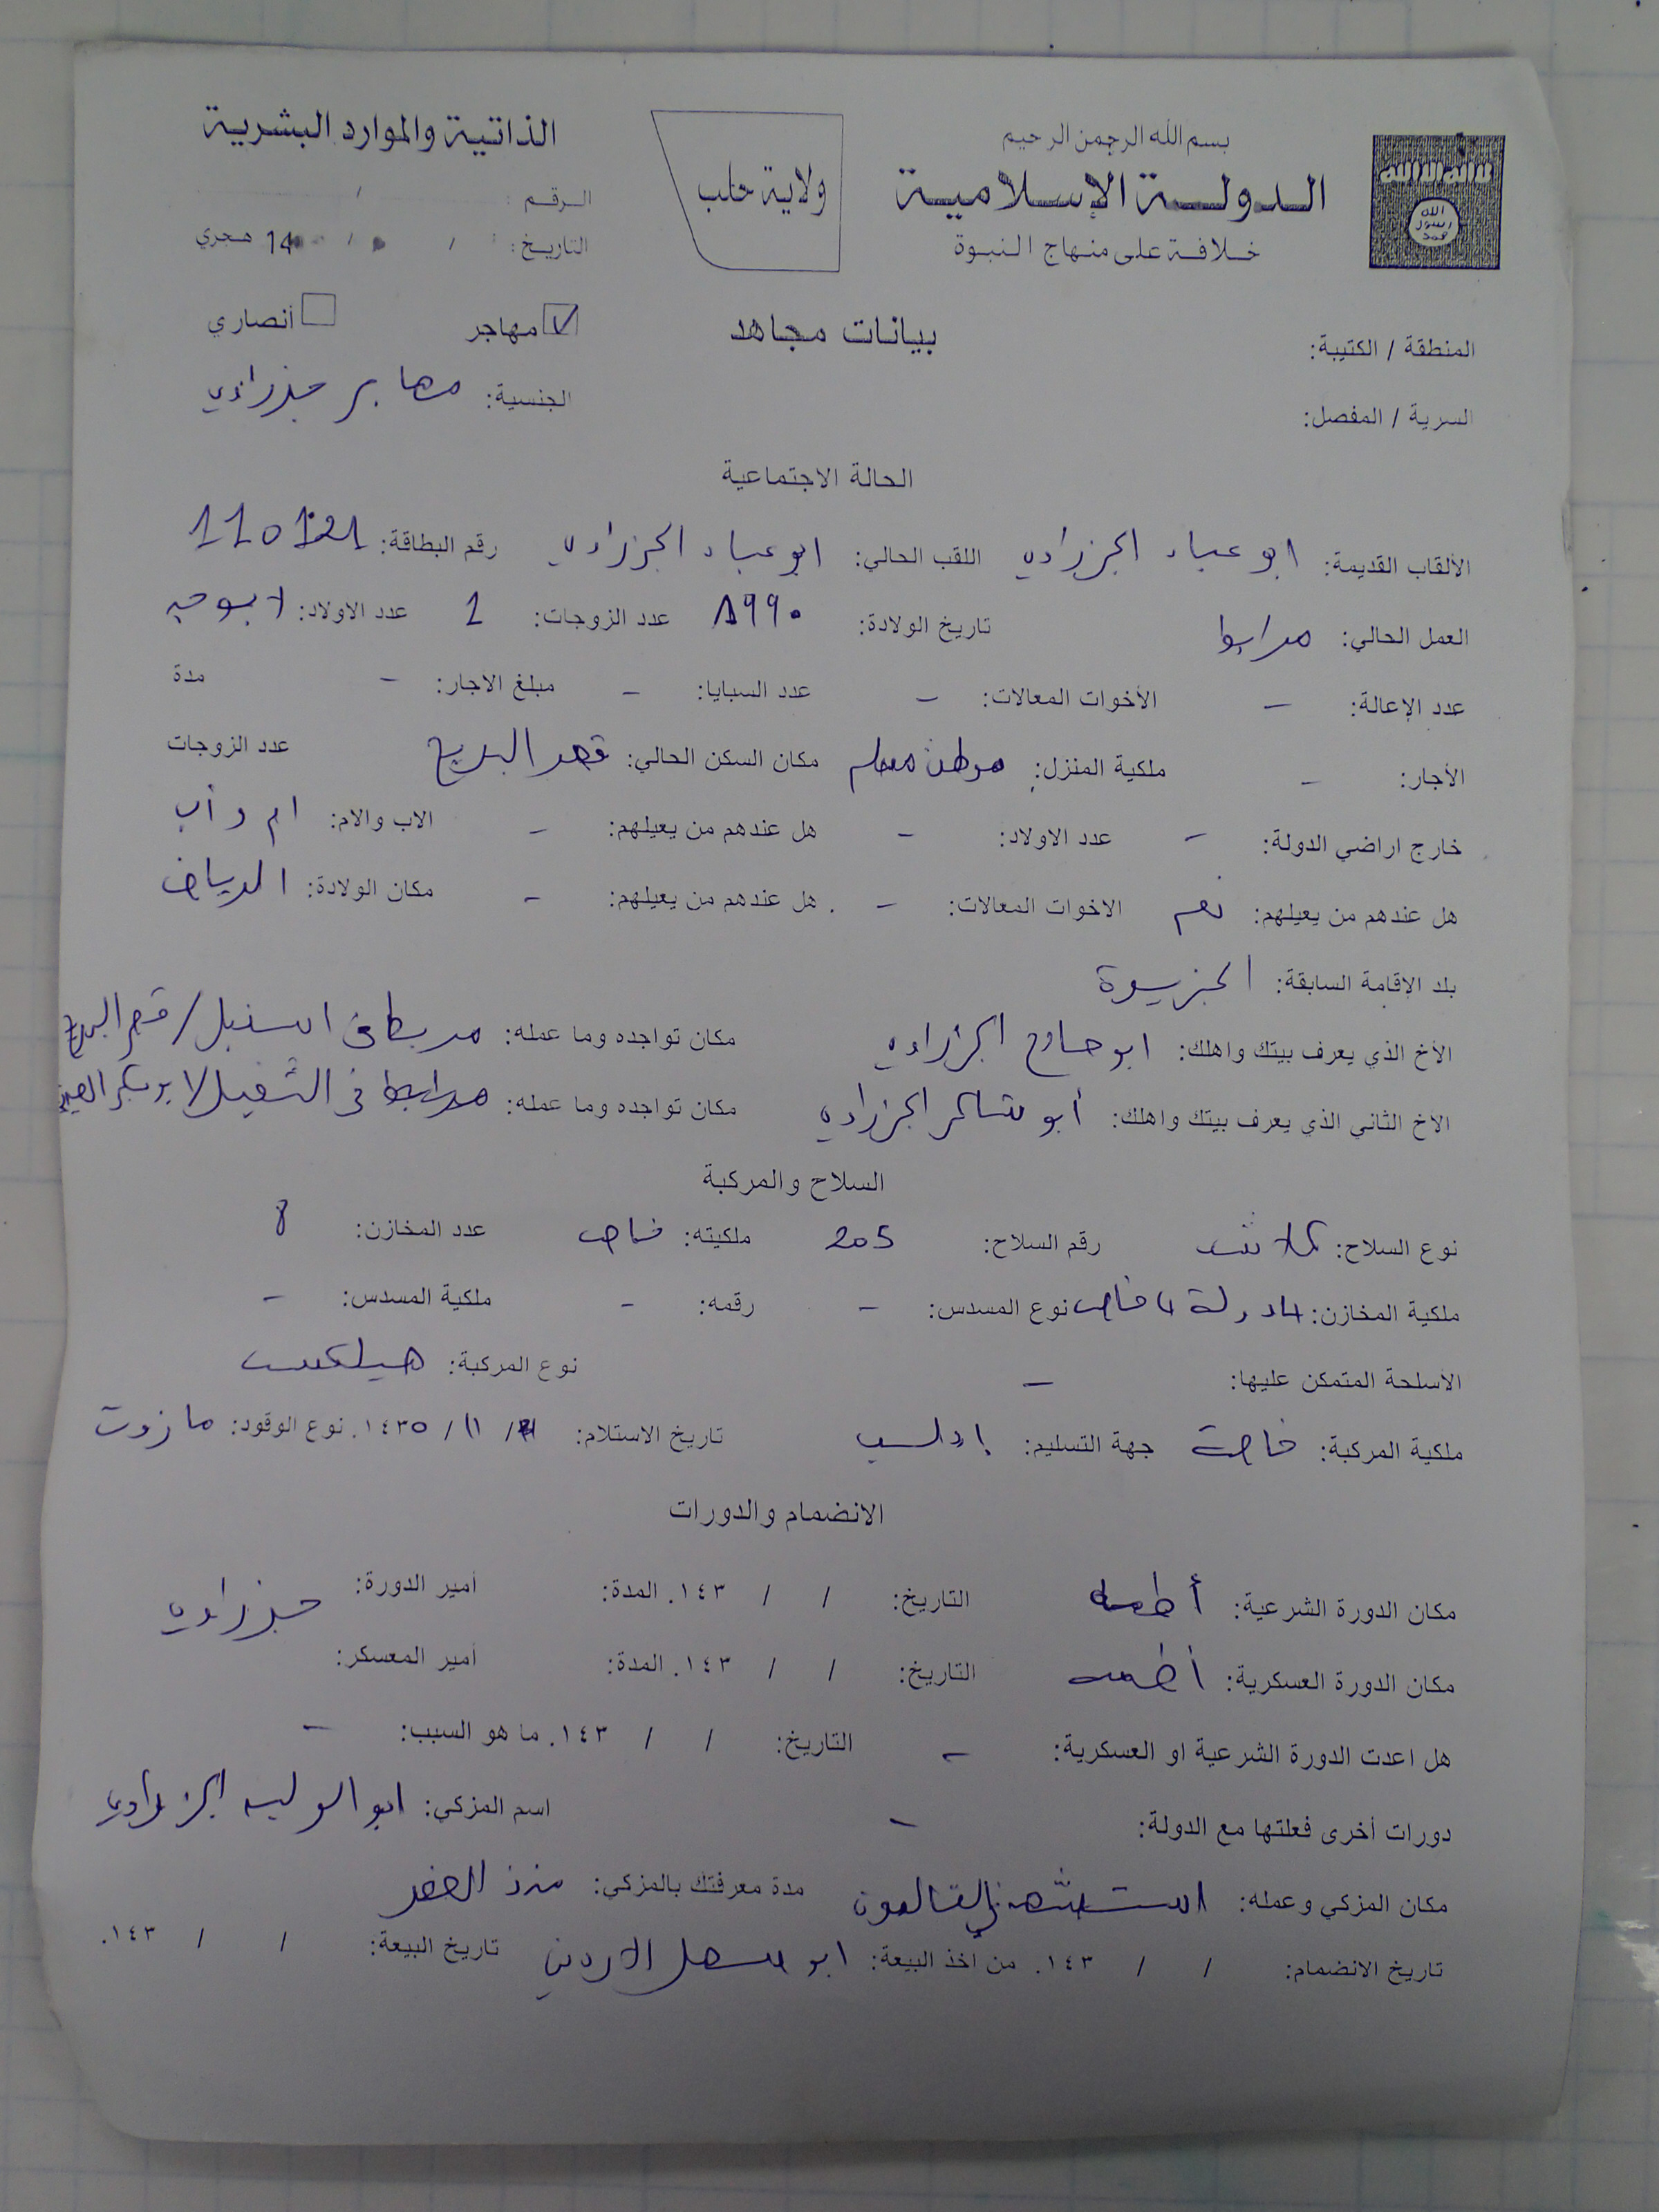 بسم الله الرحمن الرحيم
الدولة الإسلامية
خلافة على منهاج النبوة
ولاية حلب
الذاتية والموارد البشرية
الرقم : /
التاريخ: / / 14 هجري
الله
رسول
محمد
بيانات مجاهد
مهاجر أنصاري
المنطقة / الكتيبة:
الجنسية: مهاجر جزراوي
السرية / المفصل:
الحالة الاجتماعية
الألقاب القديمة: ابو عباد الجزراوي اللقب الحالي: ابو عباد الجزراوي رقم البطاقة: 110121
العمل الحالي: مرابط تاريخ الولادة: ١٩٩٠ عدد الزوجات: 1 عدد الاولاد: لا يوجد
عدد الإعالة: - الأخوات المعالات: - عدد السبايا: - مبلغ الأجار: - مدة
الأجار: - ملكية المنزل: مكان السكن الحالي: قصر البريج عدد الزوجات
خارج اراضي الدولة: - عدد الاولاد: - هل عندهم من يعيلهم: - الاب والام: ام و أب
هل عندهم من يعيلهم: نعم الاخوات المعالات: - هل عندهم من يعيلهم: - مكان الولادة: الرياض
بلد الإقامة السابقة: الجزيرة
الأخ الذي يعرف بيتك واهلك: ابو الجزراوي مكان تواجده وما عمله: مربط في / قصر البريج
الأخ الثاني الذي يعرف بيتك واهلك: أبو الجزراوي مكان تواجده وما عمله: مرابط في
السلاح والمركبة
نوع السلاح: كلاشن رقم السلاح: 205 ملكيته: خاص عدد المخازن: 8
ملكية المخازن: ٤ دولة ٤ خاص نوع المسدس: - رقمه: - ملكية المسدس: -
الأسلحة المتمكن عليها: - نوع المركبة: هيلكس
ملكية المركبة: خاصة جهة التسليم: ادلب تاريخ الاستلام: / ١١ / ١٤٣٥. نوع الوقود: مازوت
الانضمام والدورات
مكان الدورة الشرعية: أطمه التاريخ: / / ١٤٣. المدة: أمير الدورة: جزراوي
مكان الدورة العسكرية: أطمه التاريخ: / / ١٤٣. المدة: أمير المعسكر:
هل اعدت الدورة الشرعية او العسكرية: - التاريخ: / / ١٤٣. ما هو السبب: -
دورات أخرى فعلتها مع الدولة: - اسم المزكي: ابو الوليد الجزراوي
مكان المزكي وعمله: القلمون مدة معرفتك بالمزكي: منذ الصغر
تاريخ الانضمام: / / ١٤٣. من اخذ البيعة: ابو سهل الاردني تاريخ البيعة: / / ١٤٣.